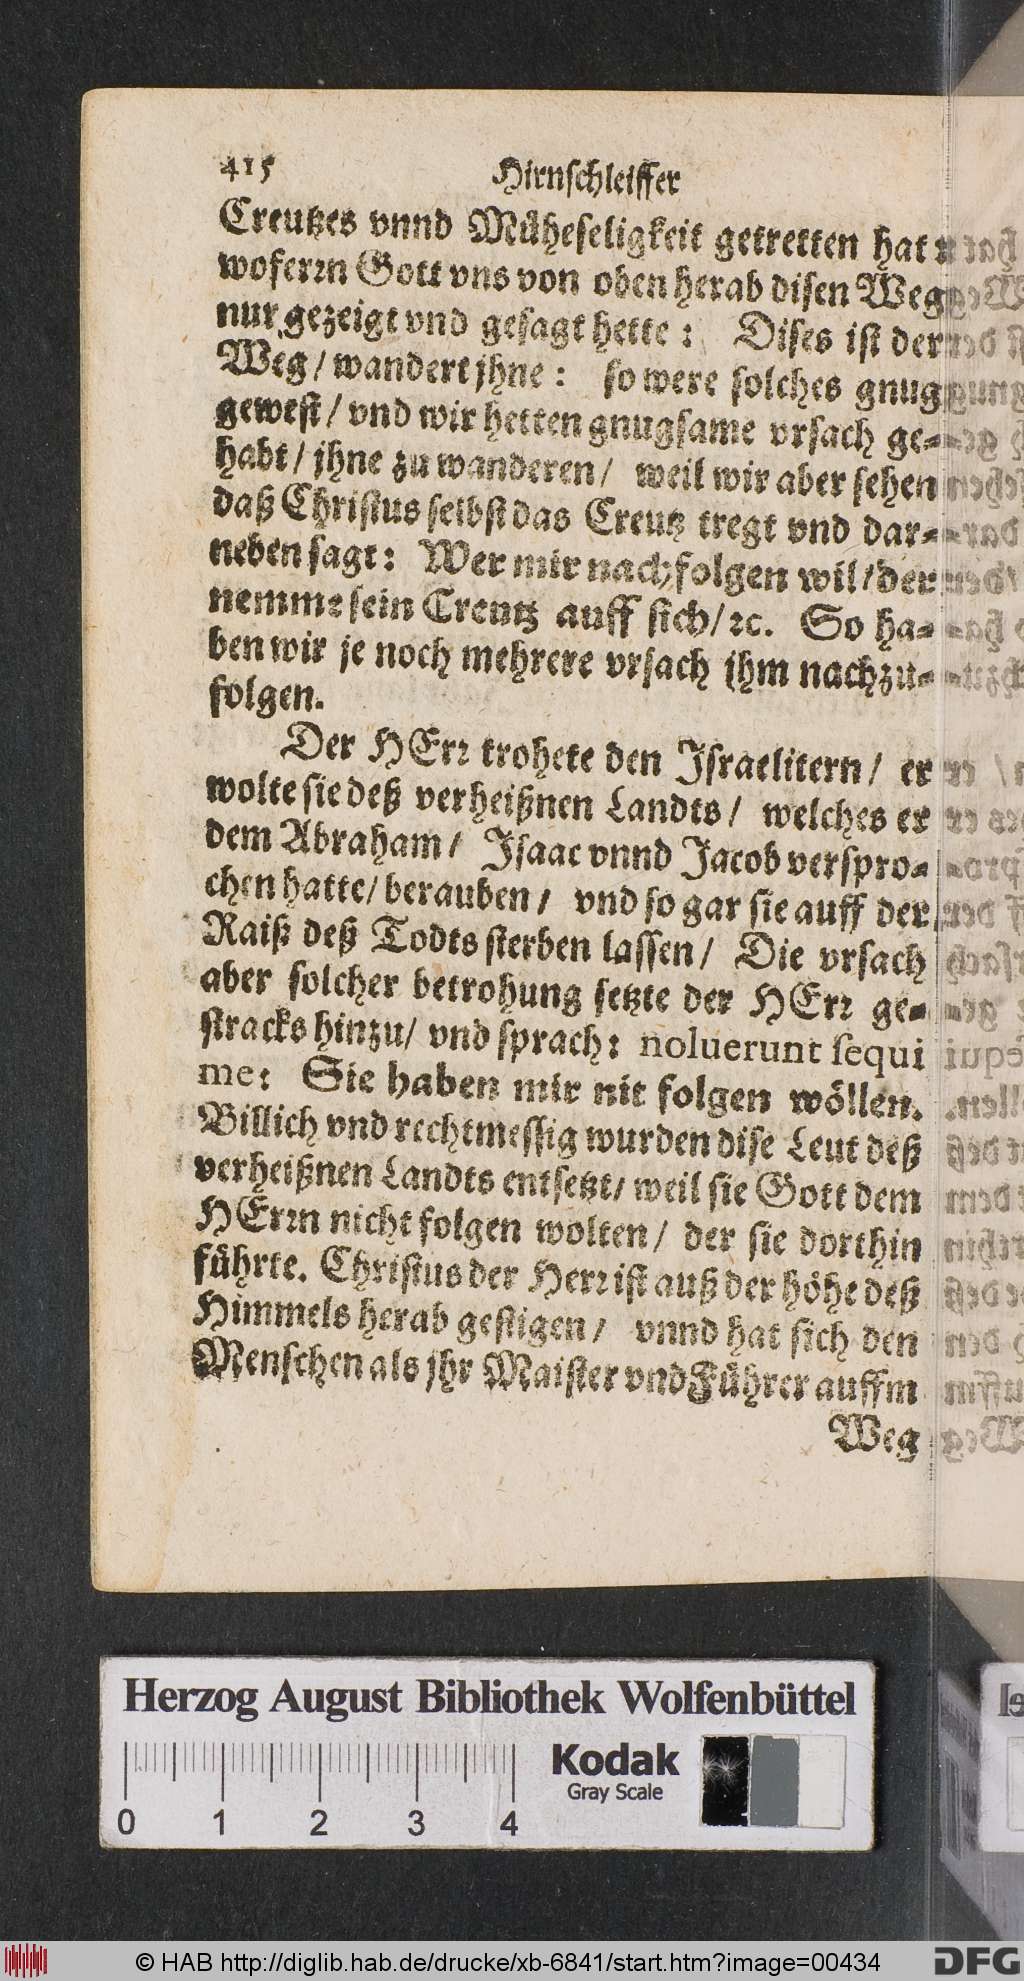 415 Hirnschleiffer
Creutzes vnnd Müheseligkeit getretten hat
woferrn Gott vns von oben herab disen Weg
nur gezeigt vnd gesagt hette: Dises ist der
Weg/ wandert jhne: so were solches gnug
gewest/ vnd wir hetten gnugsame vrsach ge-
habt/ jhne zu wanderen/ weil wir aber sehen
daß Christus selbst das Creutz tregt vnd dar-
neben sagt: Wer mir nachfolgen wil/ der
nemme sein Creutz auff sich/ ꝛc. So ha-
ben wir je noch mehrere vrsach jhm nachzu-
folgen.
Der HErr trohete den Israelitern/ er
wolte sie deß verheißnen Landts/ welches er
dem Abraham/ Isaac vnnd Jacob verspro-
chen hatte/ berauben/ vnd so gar sie auff der
Raiß deß Todts sterben lassen/ Die vrsach
aber solcher betrohung setzte der HErr ge-
stracks hinzu/ vnd sprach: noluerunt sequi
me: Sie haben mir nit folgen wöllen.
Billich vnd rechtmessig wurden dise Leut deß
verheißnen Landts entsetzt/ weil sie Gott dem
HErrn nicht folgen wolten/ der sie dorthin
führte. Christus der Herr ist auß der höhe deß
Himmels herab gestigen/ vnnd hat sich den
Menschen als jhr Maister vnd Führer auffm
Weg
Herzog August Bibliothek Wolfenbüttel
Kodak
Gray Scale
0 1 2 3 4
© HAB http://diglib.hab.de/drucke/xb-6841/start.htm?image=00434
DFG